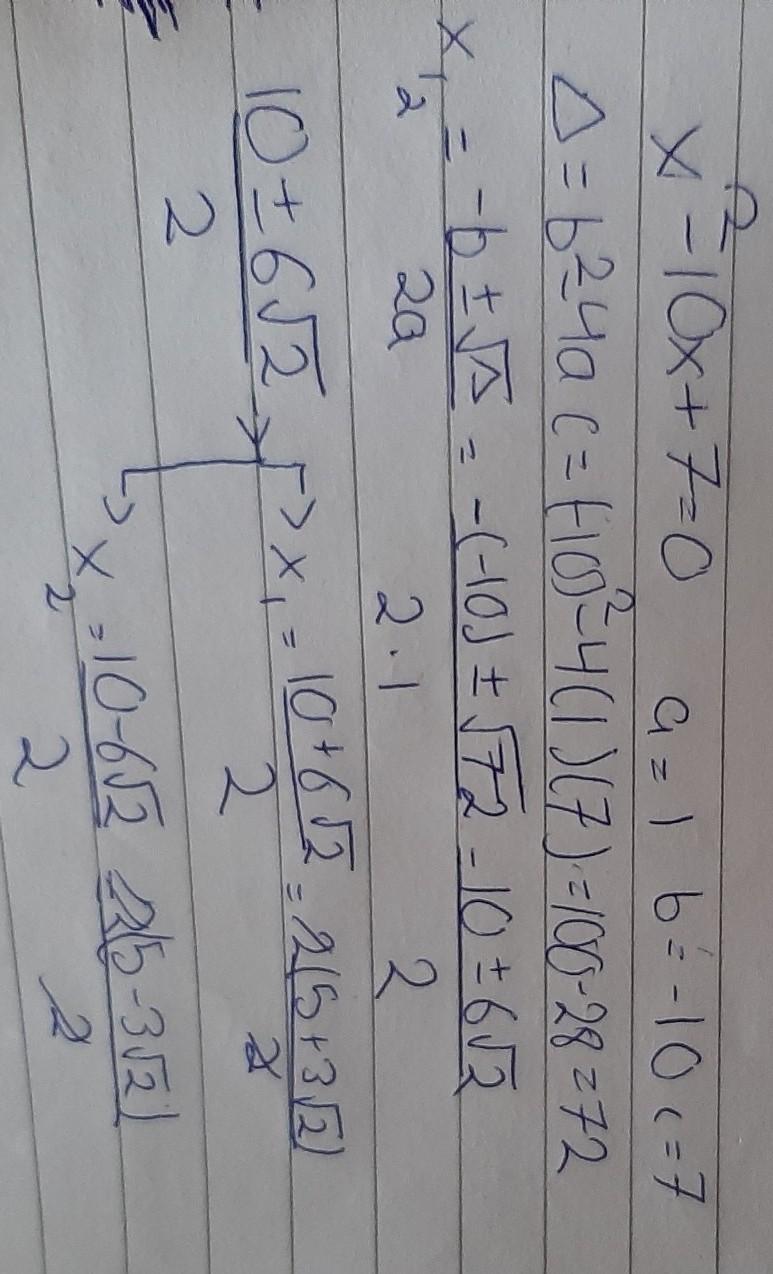 x² - 10x + 7 = 0 a = 1 b = -10 c = 7
Δ = b² - 4ac = (-10)² - 4(1)(7) = 100 - 28 = 72
x₁,₂ = -b ± √Δ / 2a = -(-10) ± √72 / 2·1 - 10 ± 6√2 / 2
10 ± 6√2 / 2
→ x₁ = 10 + 6√2 / 2 = 2(5 + 3√2) / 2
→ x₂ = 10 - 6√2 / 2 2(5 - 3√2) / 2